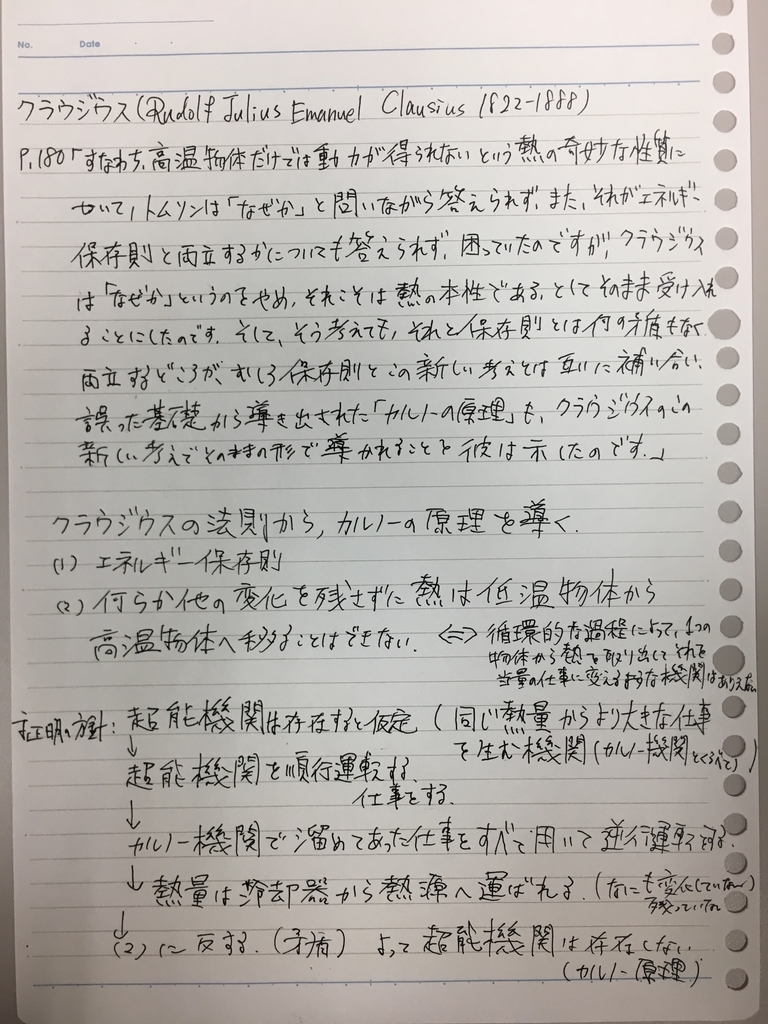 No. Date ・ ・
クラウジウス(Rudolf Julius Emanuel Clausius 1822-1888)
P.180「すなわち、高温物体だけでは動力が得られないという熱の奇妙な性質に
ついて、トムソンは「なぜか」と問いながら答えられず、また、それがエネルギー
保存則と両立するかについても答えられず、困っていたのですが、クラウジウス
は「なぜか」というのをやめ、それこそは熱の本性である、としてそのまま受け入れ
ることにしたのです。そして、そう考えても、それと保存則とは何の矛盾もなく
両立するどころか、むしろ保存則とこの新しい考えとは互いに補い合い、
誤った基礎から導き出された「カルノーの原理」も、クラウジウスのこの
新しい考えでそのままの形で導かれることを彼は示したのです。」
クラウジウスの法則から,カルノーの原理を導く.
(1) エネルギー保存則
(2) 何らか他の変化を残さずに熱は低温物体から
高温物体へ移ることはできない. ⇔ 循環的な過程によって,1つの
物体から熱を取り出してそれを
当量の仕事に変えるような機関はありえない
証明の方針: 超能機関は存在すると仮定 (同じ熱量からより大きな仕事
を生む機関(カルノー機関とくらべて))
↓
超能機関を順行運転する.
仕事をする.
↓
カルノー機関で溜めてあった仕事をすべて用いて逆行運転する.
↓ 熱量は冷却器から熱源へ運ばれる. (なにも変化していない)
残っていない
↓
(2)に反する. (矛盾) よって超能機関は存在しない
(カルノー原理)